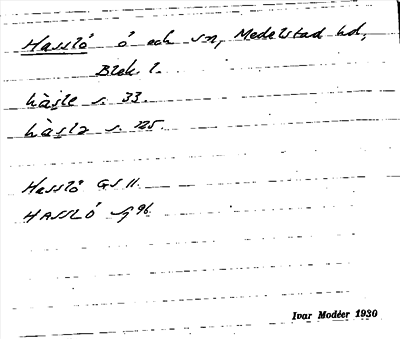 Hassló ö och sn, Medelstad hd,
Blek. l.
hàsle s. 33.
hàsla s. 125.
Hessló GS 11.
HASSLÓ 96
Ivar Modéer 1930